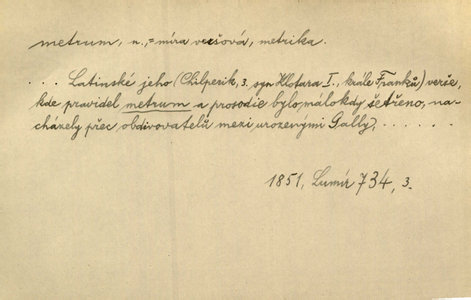 metrum, n., = míra veršová, metrika.
... Latinské jeho (Chilperik, 3. syn Hlotara I., krále Franků) verše,
kde pravidel metrum a prosodie bylo málokdy šetřeno, na-
cházely přec obdivovatelů mezi urozenými Gally, ......
1851, Lumír 734, 3.